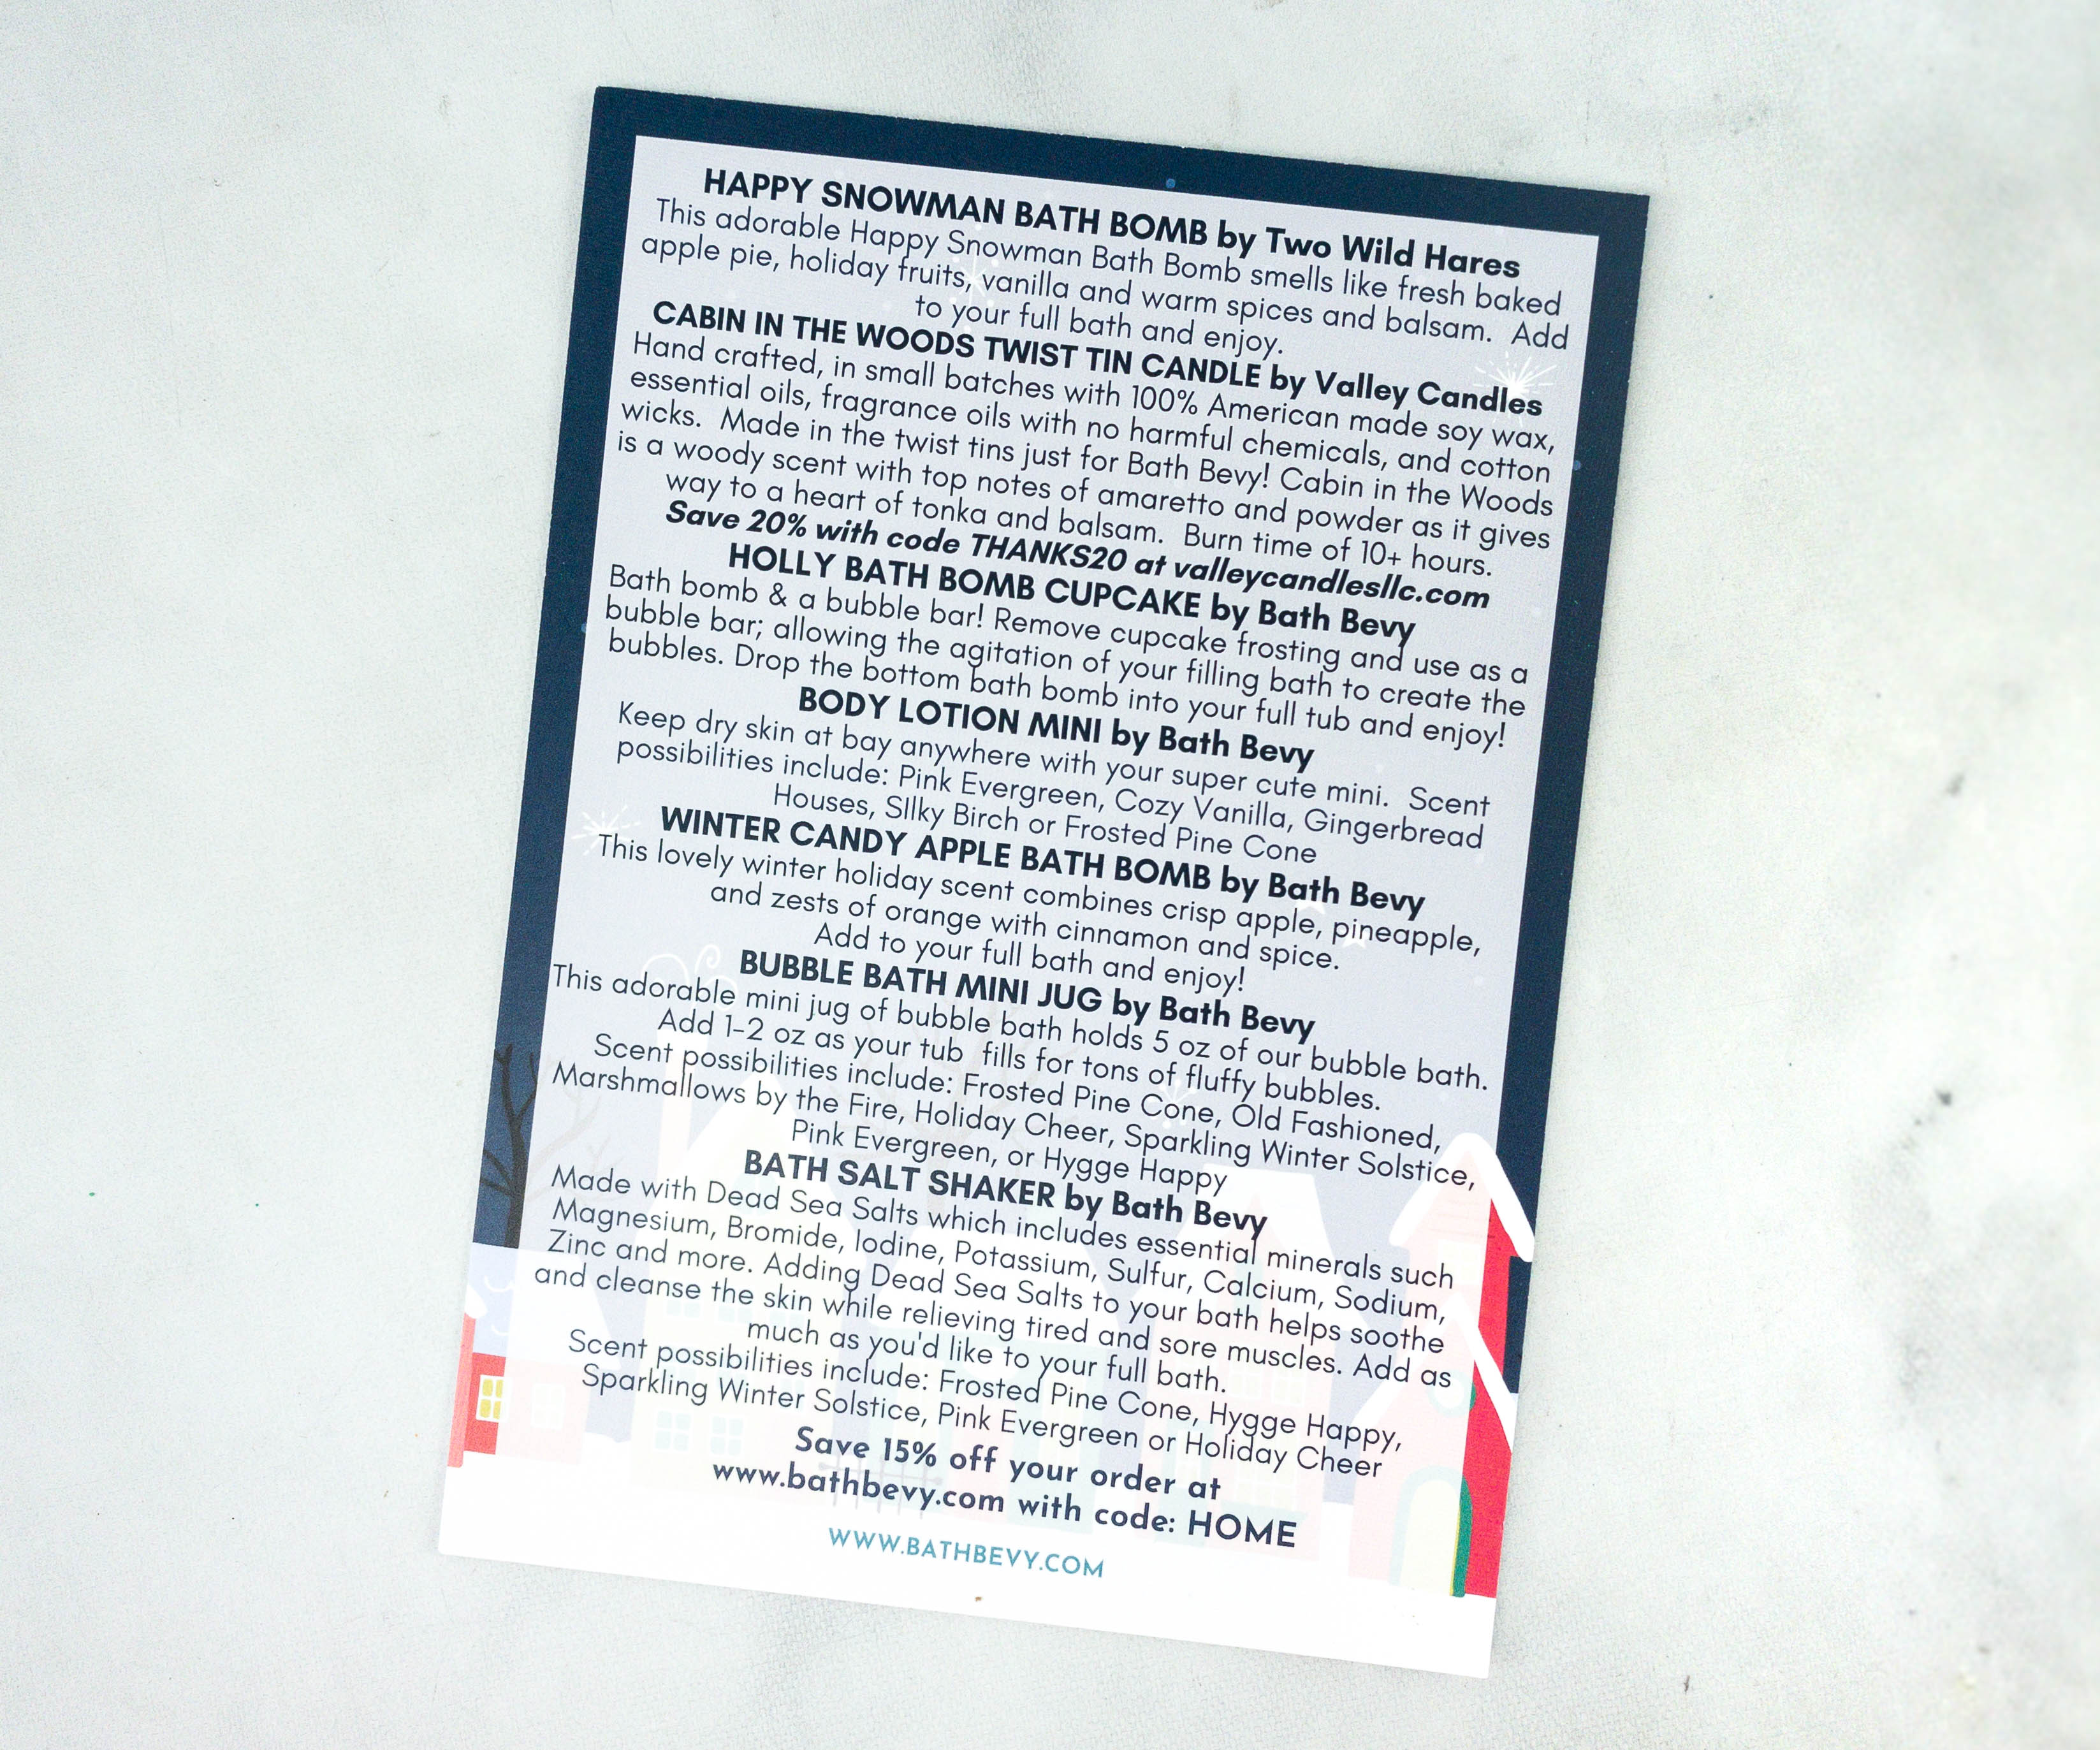 HAPPY SNOWMAN BATH BOMB by Two Wild Hares
This adorable Happy Snowman Bath Bomb smells like fresh baked
apple pie, holiday fruits, vanilla and warm spices and balsam. Add
to your full bath and enjoy.
CABIN IN THE WOODS TWIST TIN CANDLE by Valley Candles
Hand crafted, in small batches with 100% American made soy wax,
essential oils, fragrance oils with no harmful chemicals, and cotton
wicks. Made in the twist tins just for Bath Bevy! Cabin in the Woods
is a woody scent with top notes of amaretto and powder as it gives
way to a heart of tonka and balsam. Burn time of 10+ hours.
Save 20% with code THANKS20 at valleycandlesllc.com
HOLLY BATH BOMB CUPCAKE by Bath Bevy
Bath bomb & a bubble bar! Remove cupcake frosting and use as a
bubble bar; allowing the agitation of your filling bath to create the
bubbles. Drop the bottom bath bomb into your full tub and enjoy!
BODY LOTION MINI by Bath Bevy
Keep dry skin at bay anywhere with your super cute mini. Scent
possibilities include: Pink Evergreen, Cozy Vanilla, Gingerbread
Houses, SIlky Birch or Frosted Pine Cone
WINTER CANDY APPLE BATH BOMB by Bath Bevy
This lovely winter holiday scent combines crisp apple, pineapple,
and zests of orange with cinnamon and spice.
Add to your full bath and enjoy!
BUBBLE BATH MINI JUG by Bath Bevy
This adorable mini jug of bubble bath holds 5 oz of our bubble bath.
Add 1-2 oz as your tub fills for tons of fluffy bubbles.
Scent possibilities include: Frosted Pine Cone, Old Fashioned,
Marshmallows by the Fire, Holiday Cheer, Sparkling Winter Solstice,
Pink Evergreen, or Hygge Happy
BATH SALT SHAKER by Bath Bevy
Made with Dead Sea Salts which includes essential minerals such
Magnesium, Bromide, Iodine, Potassium, Sulfur, Calcium, Sodium,
Zinc and more. Adding Dead Sea Salts to your bath helps soothe
and cleanse the skin while relieving tired and sore muscles. Add as
much as you'd like to your full bath.
Scent possibilities include: Frosted Pine Cone, Hygge Happy,
Sparkling Winter Solstice, Pink Evergreen or Holiday Cheer
Save 15% off your order at
www.bathbevy.com with code: HOME
WWW.BATHBEVY.COM